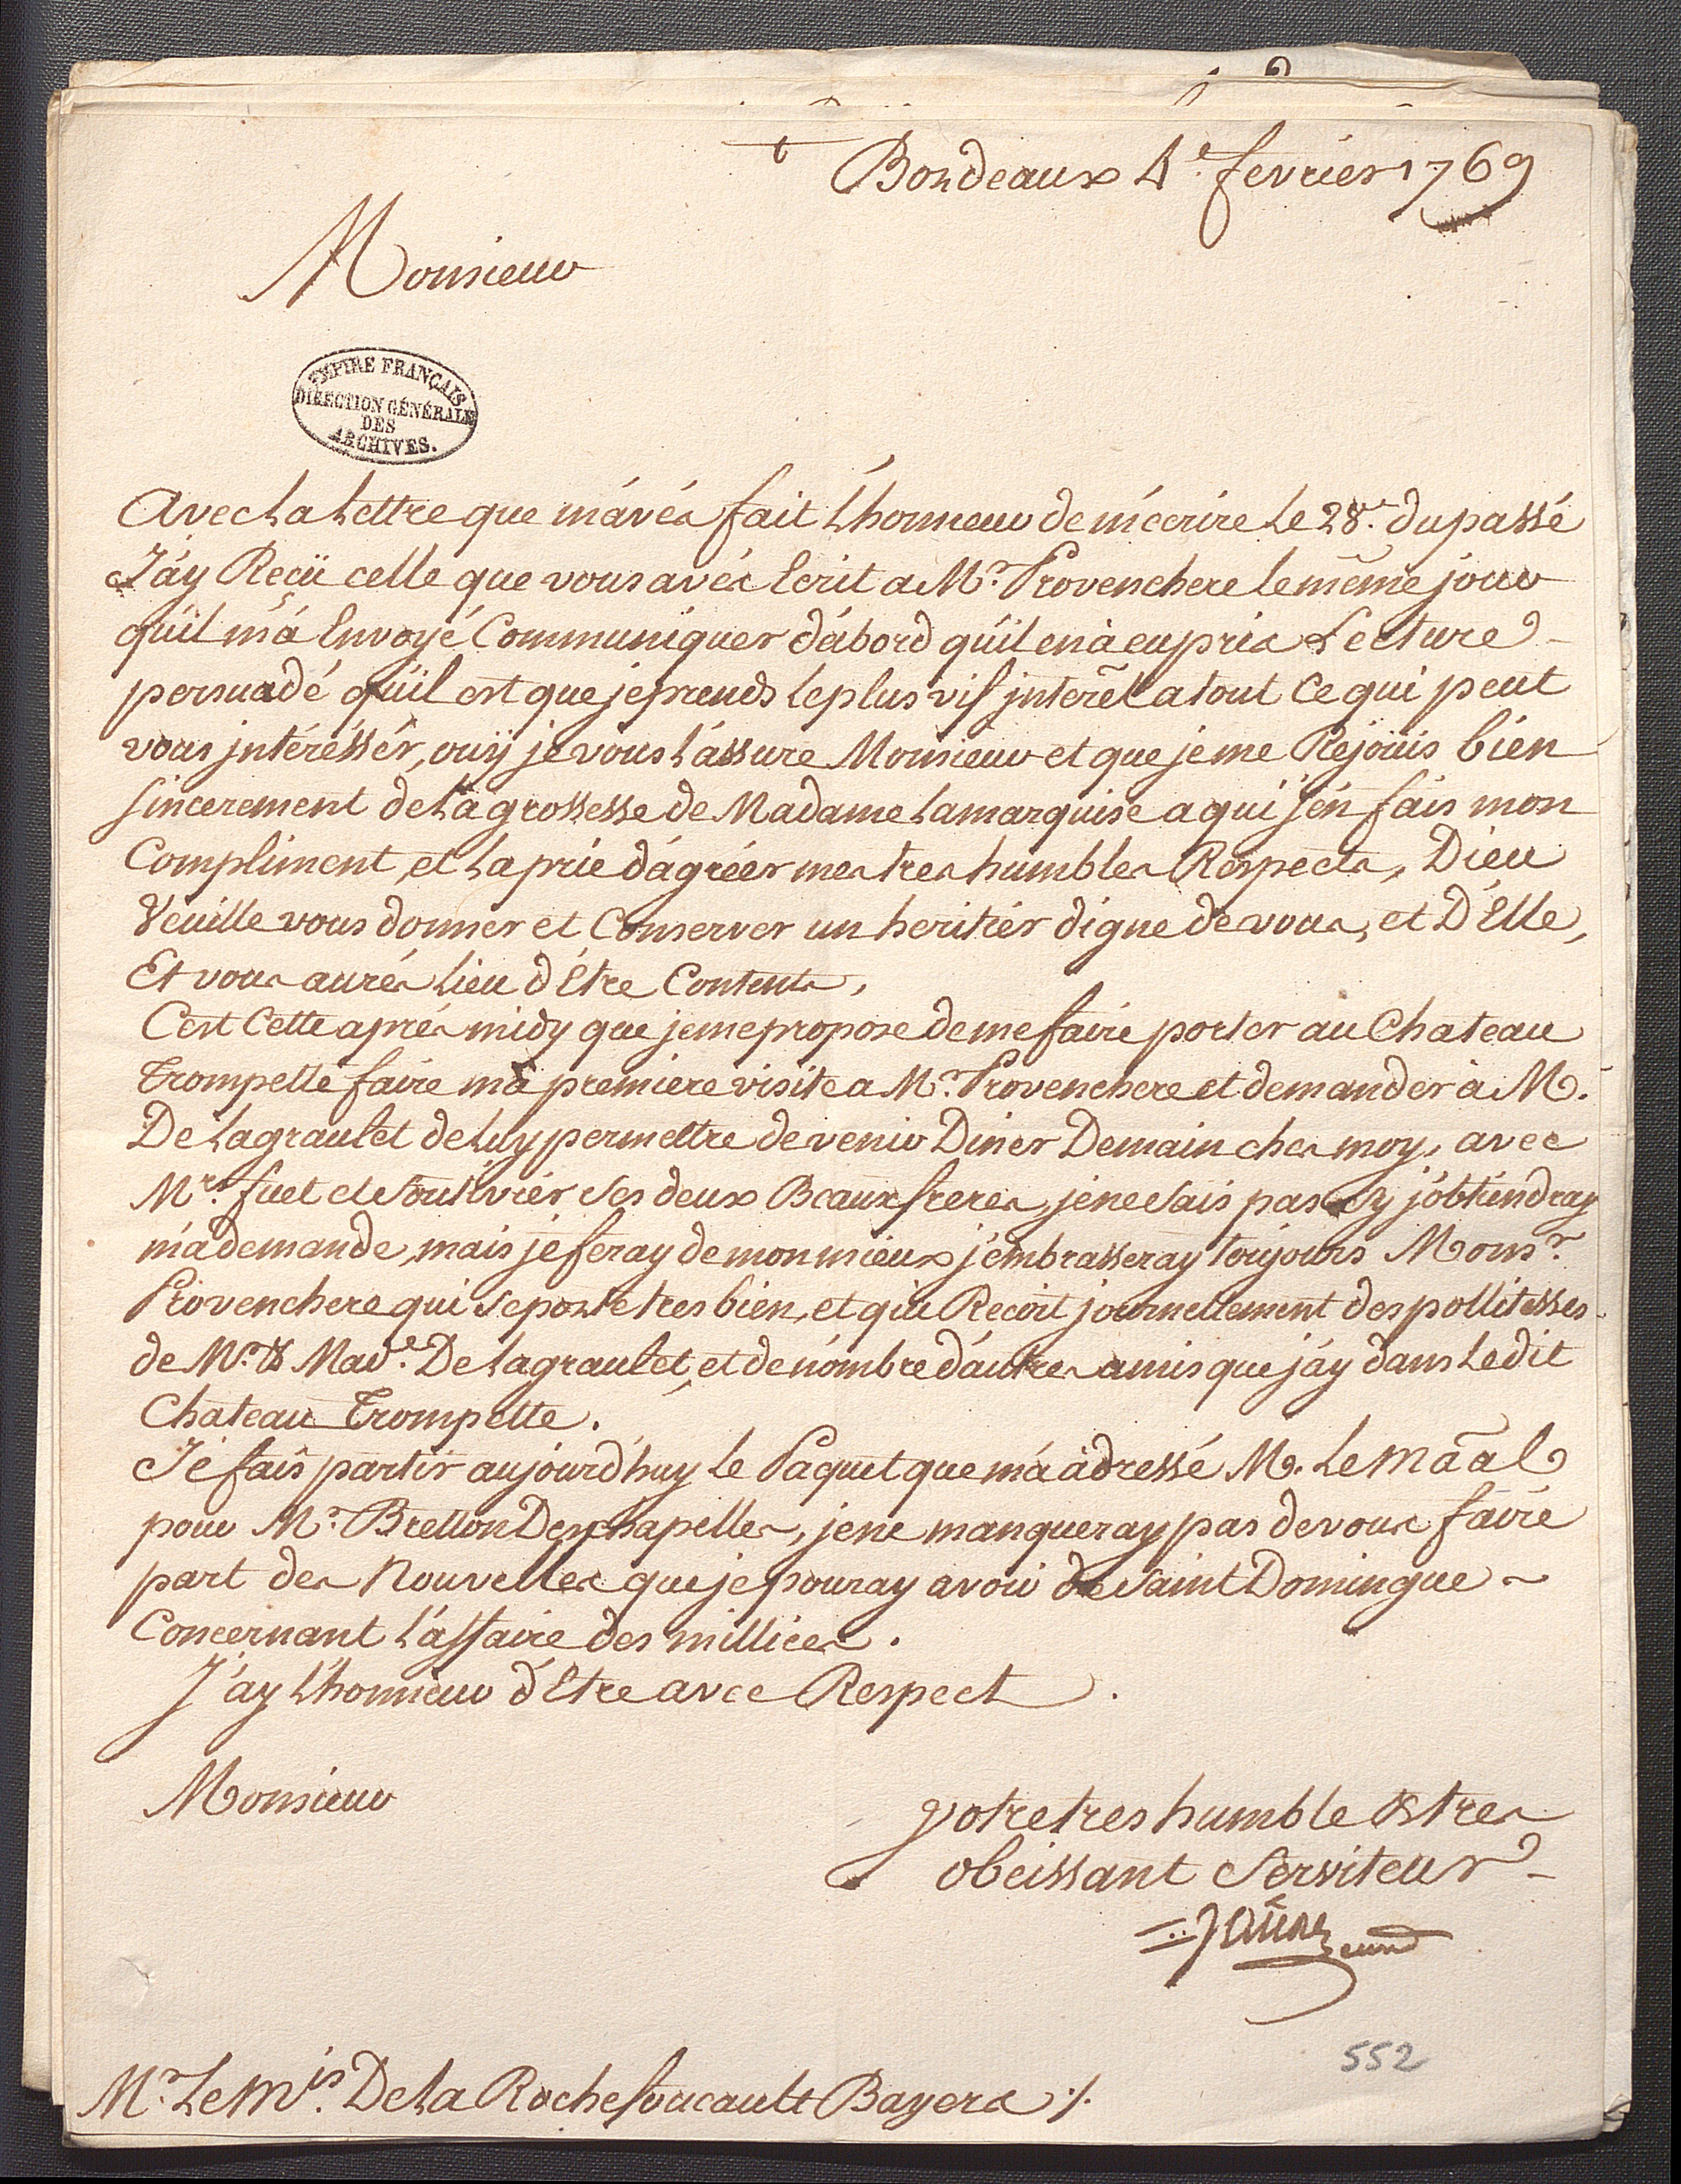 Bordeaux 4e. fevrier 1769
Monsieur
EMPIRE FRANÇAIS
DIRECTION GÉNÉRALE
DES
ARCHIVES.
Avec La Lettre que m'avés fait L'honneur de m'écrire Le 28e. du passé
J'ay Reçü celle que vous avés Ecrit a Mr. Provenchere le même jour
qu'il m'a Envoyé Communiquer d'abord qu'il en à eu pris Lecture
persuadé qu'il est que je prends le plus vif jnterêt a tout ce qui peut
vous jntéréssér, ouÿ je vous L'assure Monsieur et que je me Rejoüis bien
sincerement de La grossesse de Madame Lamarquise a qui j'en fais mon
Compliment, et La prie d'agréer mes tres humbles Respects, Dieu
Veuille vous donner et Conserver un heritiér digne de vous, et D'Elle,
Et vous aurés Lieu d'Etre Contents,
C'est Cette aprés midy que je me propose de me faire porter au Chateau
Trompette faire ma premiere visite a Mr. Provenchere et demander à M.
De Lagraulet de Luy permettre de venir Diner Demain ches moy, avec
Mrs. fuet et Soutivier ses deux Beaux freres, je ne sais pas sy j'obtiendray
ma demande, mais je feray de mon mieux j'embrasseray toujours Monsr.
Provenchere qui se porte tres bien, et qui Recoit journellement des pollitesses
de Mr. & Made. De Lagraulet, et de nombre d'autres amis que j'ay dans Ledit
Chateau Trompette.
Je fais partir aujourd'huy le Paquet que m'a adressé M. Le Māal
pour Mr. Bretton Deschapelles, je ne manqueray pas de vous faire
part des Nouvelles que je pouray avoir de Saint Domingue
Concernant L'affaire des millices.
J'ay L'honneur d'Etre avec Respect.
Monsieur
votre tres humble & tres
obeissant Serviteur
552
Mr. Le Mis. De La Rochefoucault Bayers ./.